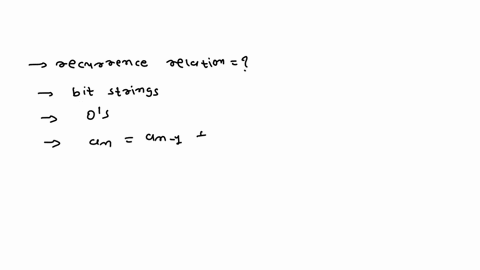 → recurrence relation = ?
→ bit strings
→ 0's
→ an = an-1 +